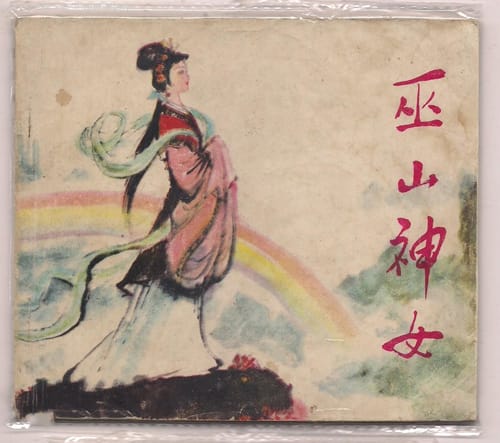 巫山神女